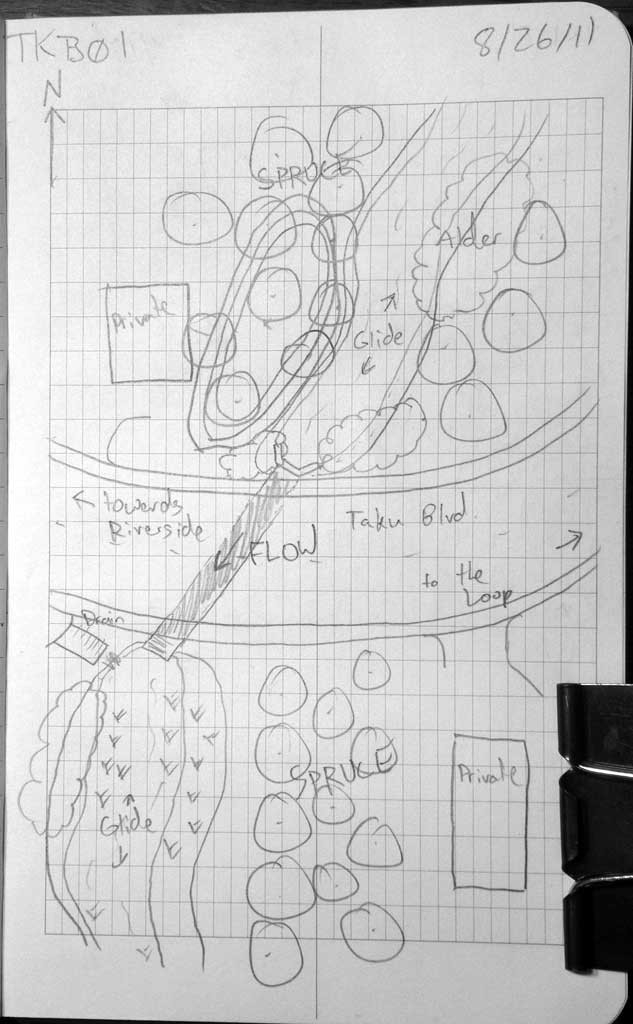 TKB01
8/26/11
N
SPRUCE
Alder
Private
Glide
← towards
Riverside
Taku Blvd.
FLOW
to the
Loop
Drain
SPRUCE
Private
Glide